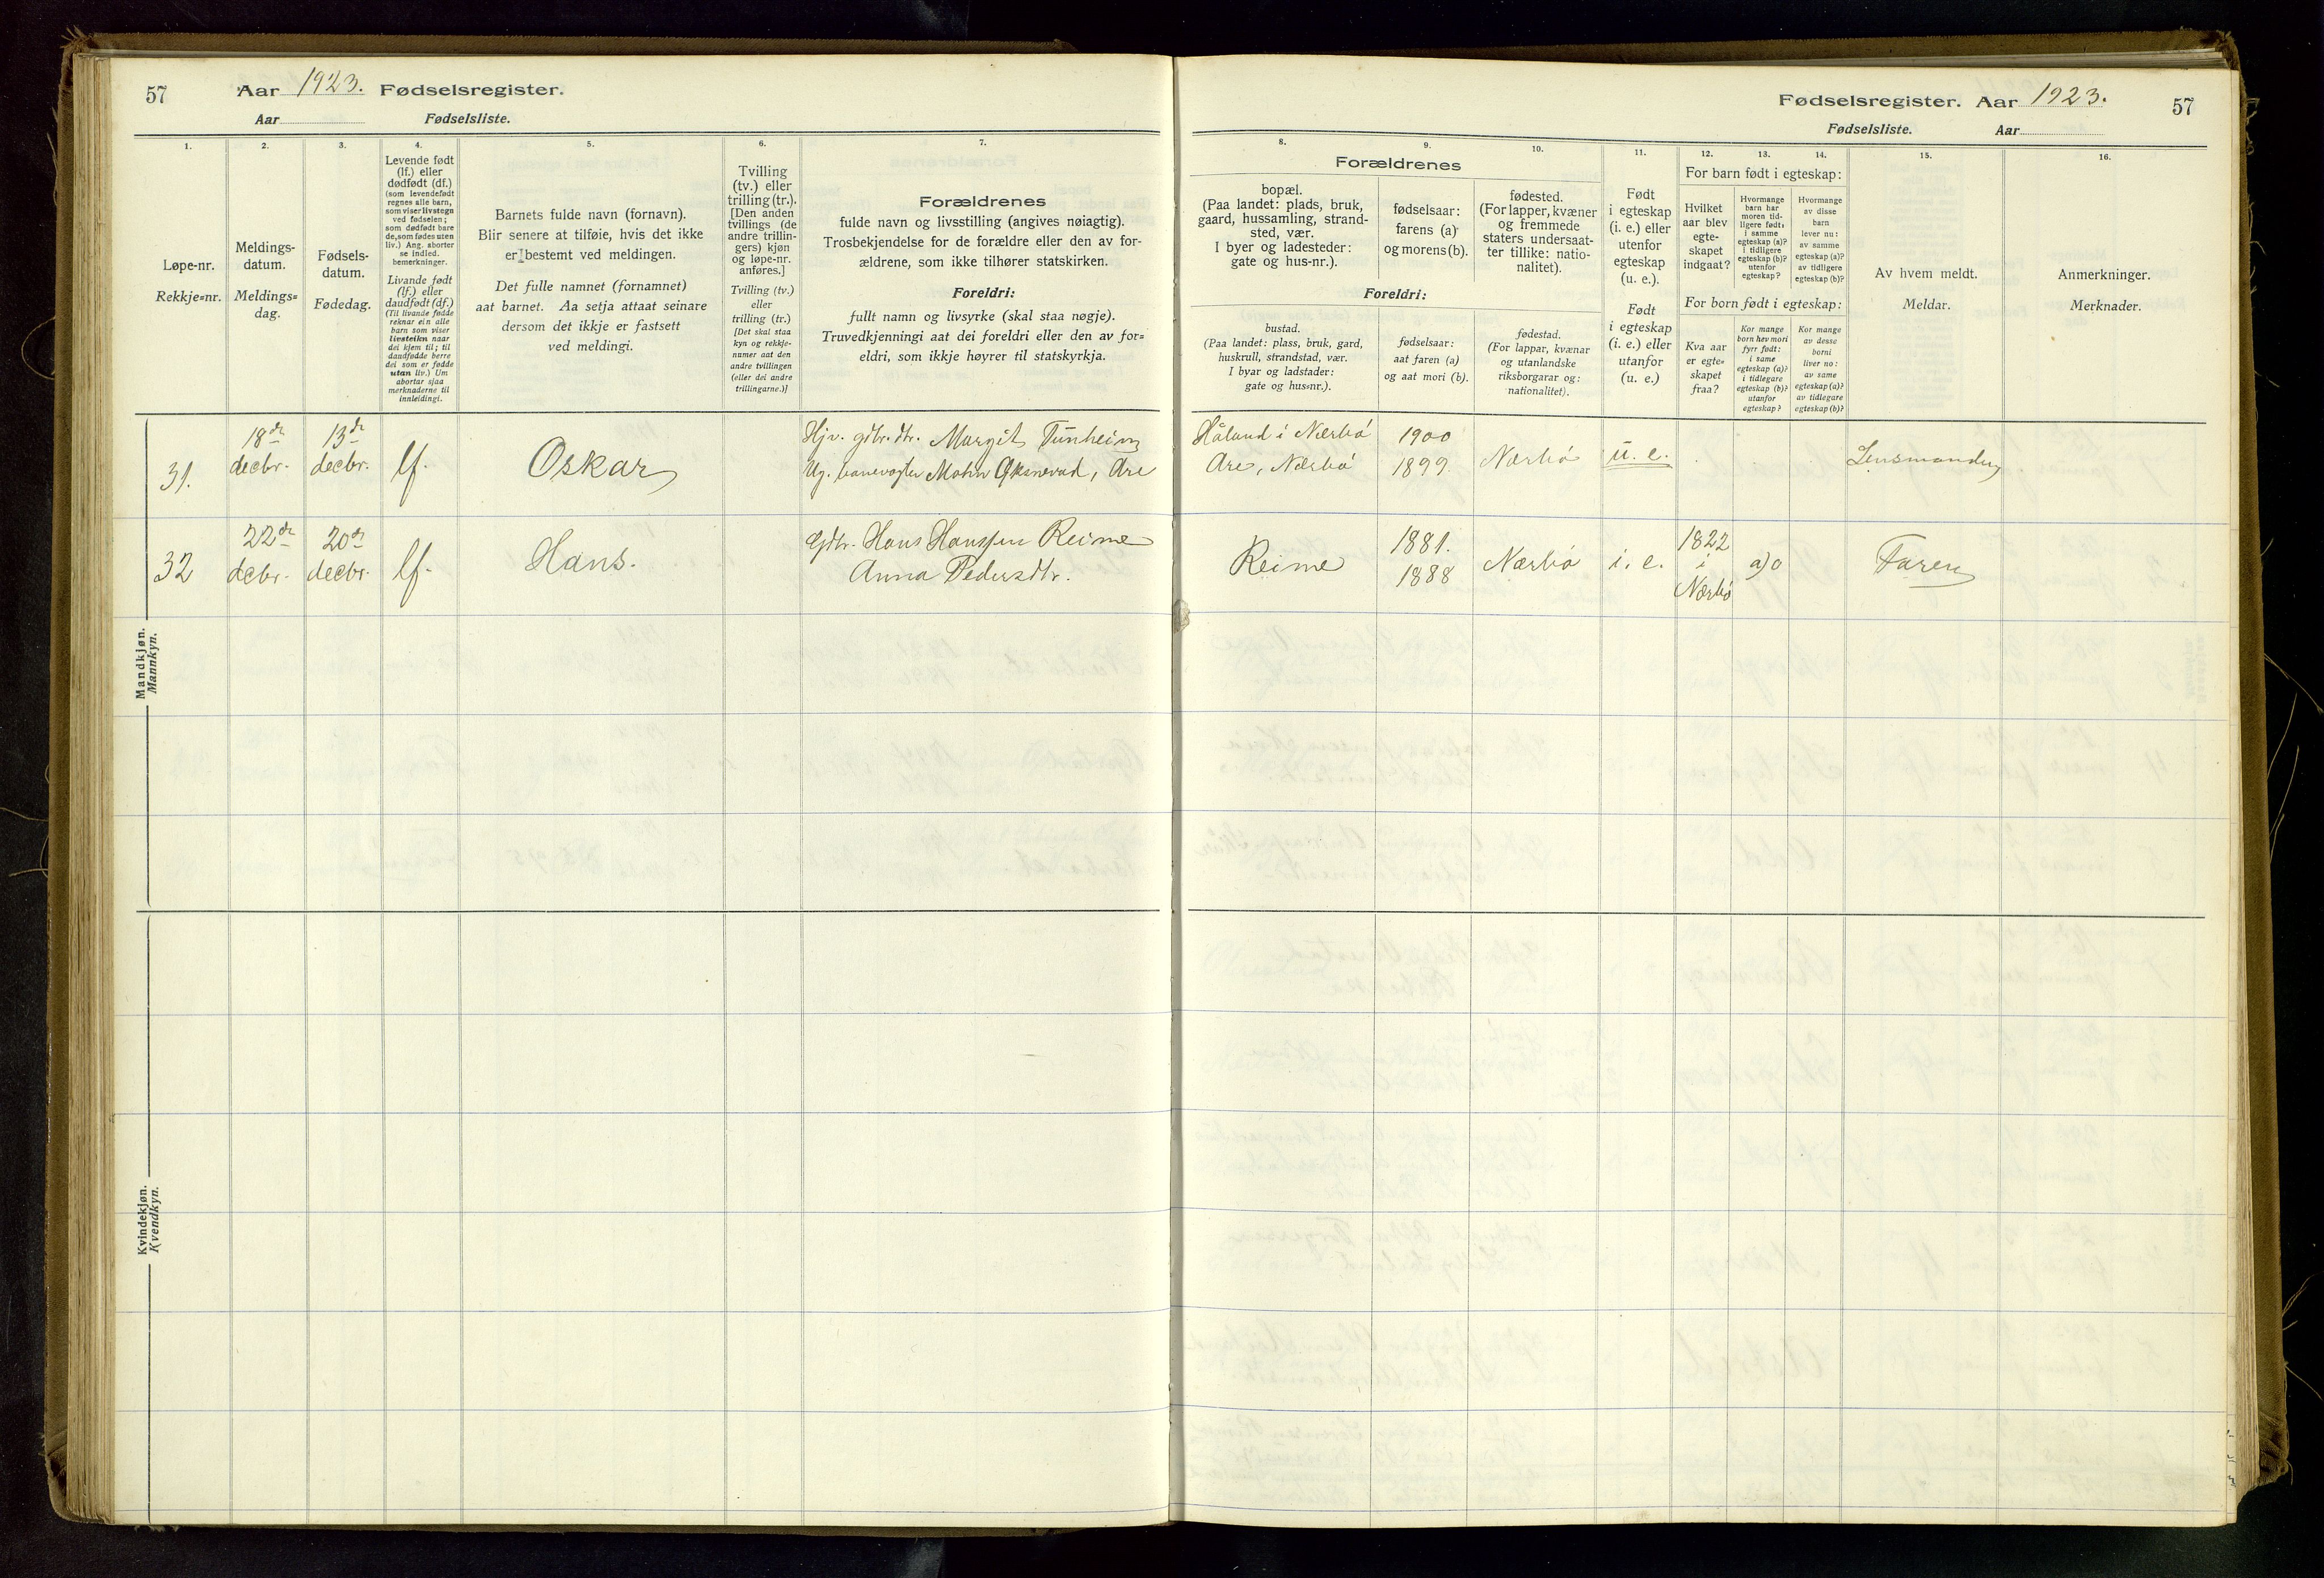 57 Aar 1923. Fødselsregister.
Aar Fødselsliste.
1.
Løpe-nr.
Rekkje=nr.
2.
Meldings-
datum.
Meldings=
dag.
3.
Fødsels-
datum.
Fødedag.
4.
Levende født
(lf.) eller
dødfødt (df.)
(som levendefødt
regnes alle barn,
som viser livstegn
ved fødselen;
som dødfødt bare
de, som fødes uten
liv.) Ang. aborter
se indled.
bemerkninger.
Livande født
(lf.) eller
daudfødt (df.)
(Til livande fødde
reknar ein alle
barn som viser
livsteikn naar
dei kjem til; til
daudfødde berre
dei som er fødde
utan liv.) Um
abortar sjaa
merknaderne til
innleidingi.
5.
Barnets fulde navn (fornavn).
Blir senere at tilføie, hvis det ikke
er bestemt ved meldingen.
Det fulle namnet (fornamnet)
aat barnet. Aa setja attaat seinare
dersom det ikkje er fastsett
ved meldingi.
6.
Tvilling
(tv.) eller
trilling (tr.).
[Den anden
tvillings (de
andre trillin-
gers) kjøn
og løpe-nr.
anføres.]
Tvilling (tv.)
eller
trilling (tr.)
[Det skal staa
kyn og rekkje-
numer aat den
andre tvillingen
(eller dei andre
trillingarne.)]
7.
Forældrenes
fulde navn og livsstilling (angives nøiagtig).
Trosbekjendelse for de forældre eller den av for-
ældrene, som ikke tilhører statskirken.
Foreldri:
fullt namn og livsyrke (skal staa nøgje).
Truvedkjenningi aat dei foreldri eller den av for=
eldri, som ikkje høyrer til statskyrkja.
31.
18de decbr.
13de decbr.
lf.
Oskar
Hjv. gdbr. dtr. Margit Tunheim
Ug. banevogter Mohn Øksnevad, Are
32
22de decbr.
20de decbr.
lf.
Hans.
Gdbr. Hans Hanssen Reime
Anna Pedersdtr.
Mandkjøn.
Mannkyn.
Kvindekjøn.
Kvendkyn.
Fødselsregister. Aar 1923. 57
Fødselsliste. Aar
Forældrenes
8.
bopæl.
(Paa landet: plads, bruk,
gaard, hussamling, strand-
sted, vær.
I byer og ladesteder:
gate og hus-nr.).
9.
fødselsaar:
farens (a)
og morens (b).
10.
fødested.
(For lapper, kvæner
og fremmede
staters undersaat-
ter tillike: natio-
nalitet).
Foreldri:
bustad.
(Paa landet: plass, bruk, gard,
huskrull, strandstad, vær.
I byar og ladstader:
gate og hus=nr.).
fødselsaar:
aat faren (a)
og aat mori (b).
fødestad.
(For lappar, kvænar
og utanlandske
riksborgarar og:
nationalitet).
11.
Født
i egteskap
(i. e.) eller
utenfor
egteskap
(u. e.).
Født
i egteskap
(i. e.) eller
utanfor
(u. e.)
12. 13. 14.
For barn født i egteskap:
Hvilket
aar blev
egte-
skapet
indgaat?
Hvormange
barn har
moren tid-
ligere født:
i samme
egteskap (a)?
i tidligere
egteskap (b)?
utenfor
egteskap?
Hvormange
av disse
barn
lever nu:
av samme
egteskap (a)?
av tidligere
egteskap (b)?
For born født i egteskap:
Kva aar
er egte=
skapet
fraa?
Kor mange
born hev mori
fyrr født:
i same
egteskap (a)?
i tidlegare
egteskap (b)?
utanfor
egteskap?
Kor mange
av desse
borni
liver no:
av same
egteskap (a)?
av tidlegare
egteskap (b)?
15.
Av hvem meldt.
Meldar.
16.
Anmerkninger.
Merknader.
Håland i Nærbö 1900
Are, Nærbö 1899. Nærbö u. e. Lensmanden
Reime 1881. 1888 Nærbö i. e. 1822 i Nærbö a) 0 Faren